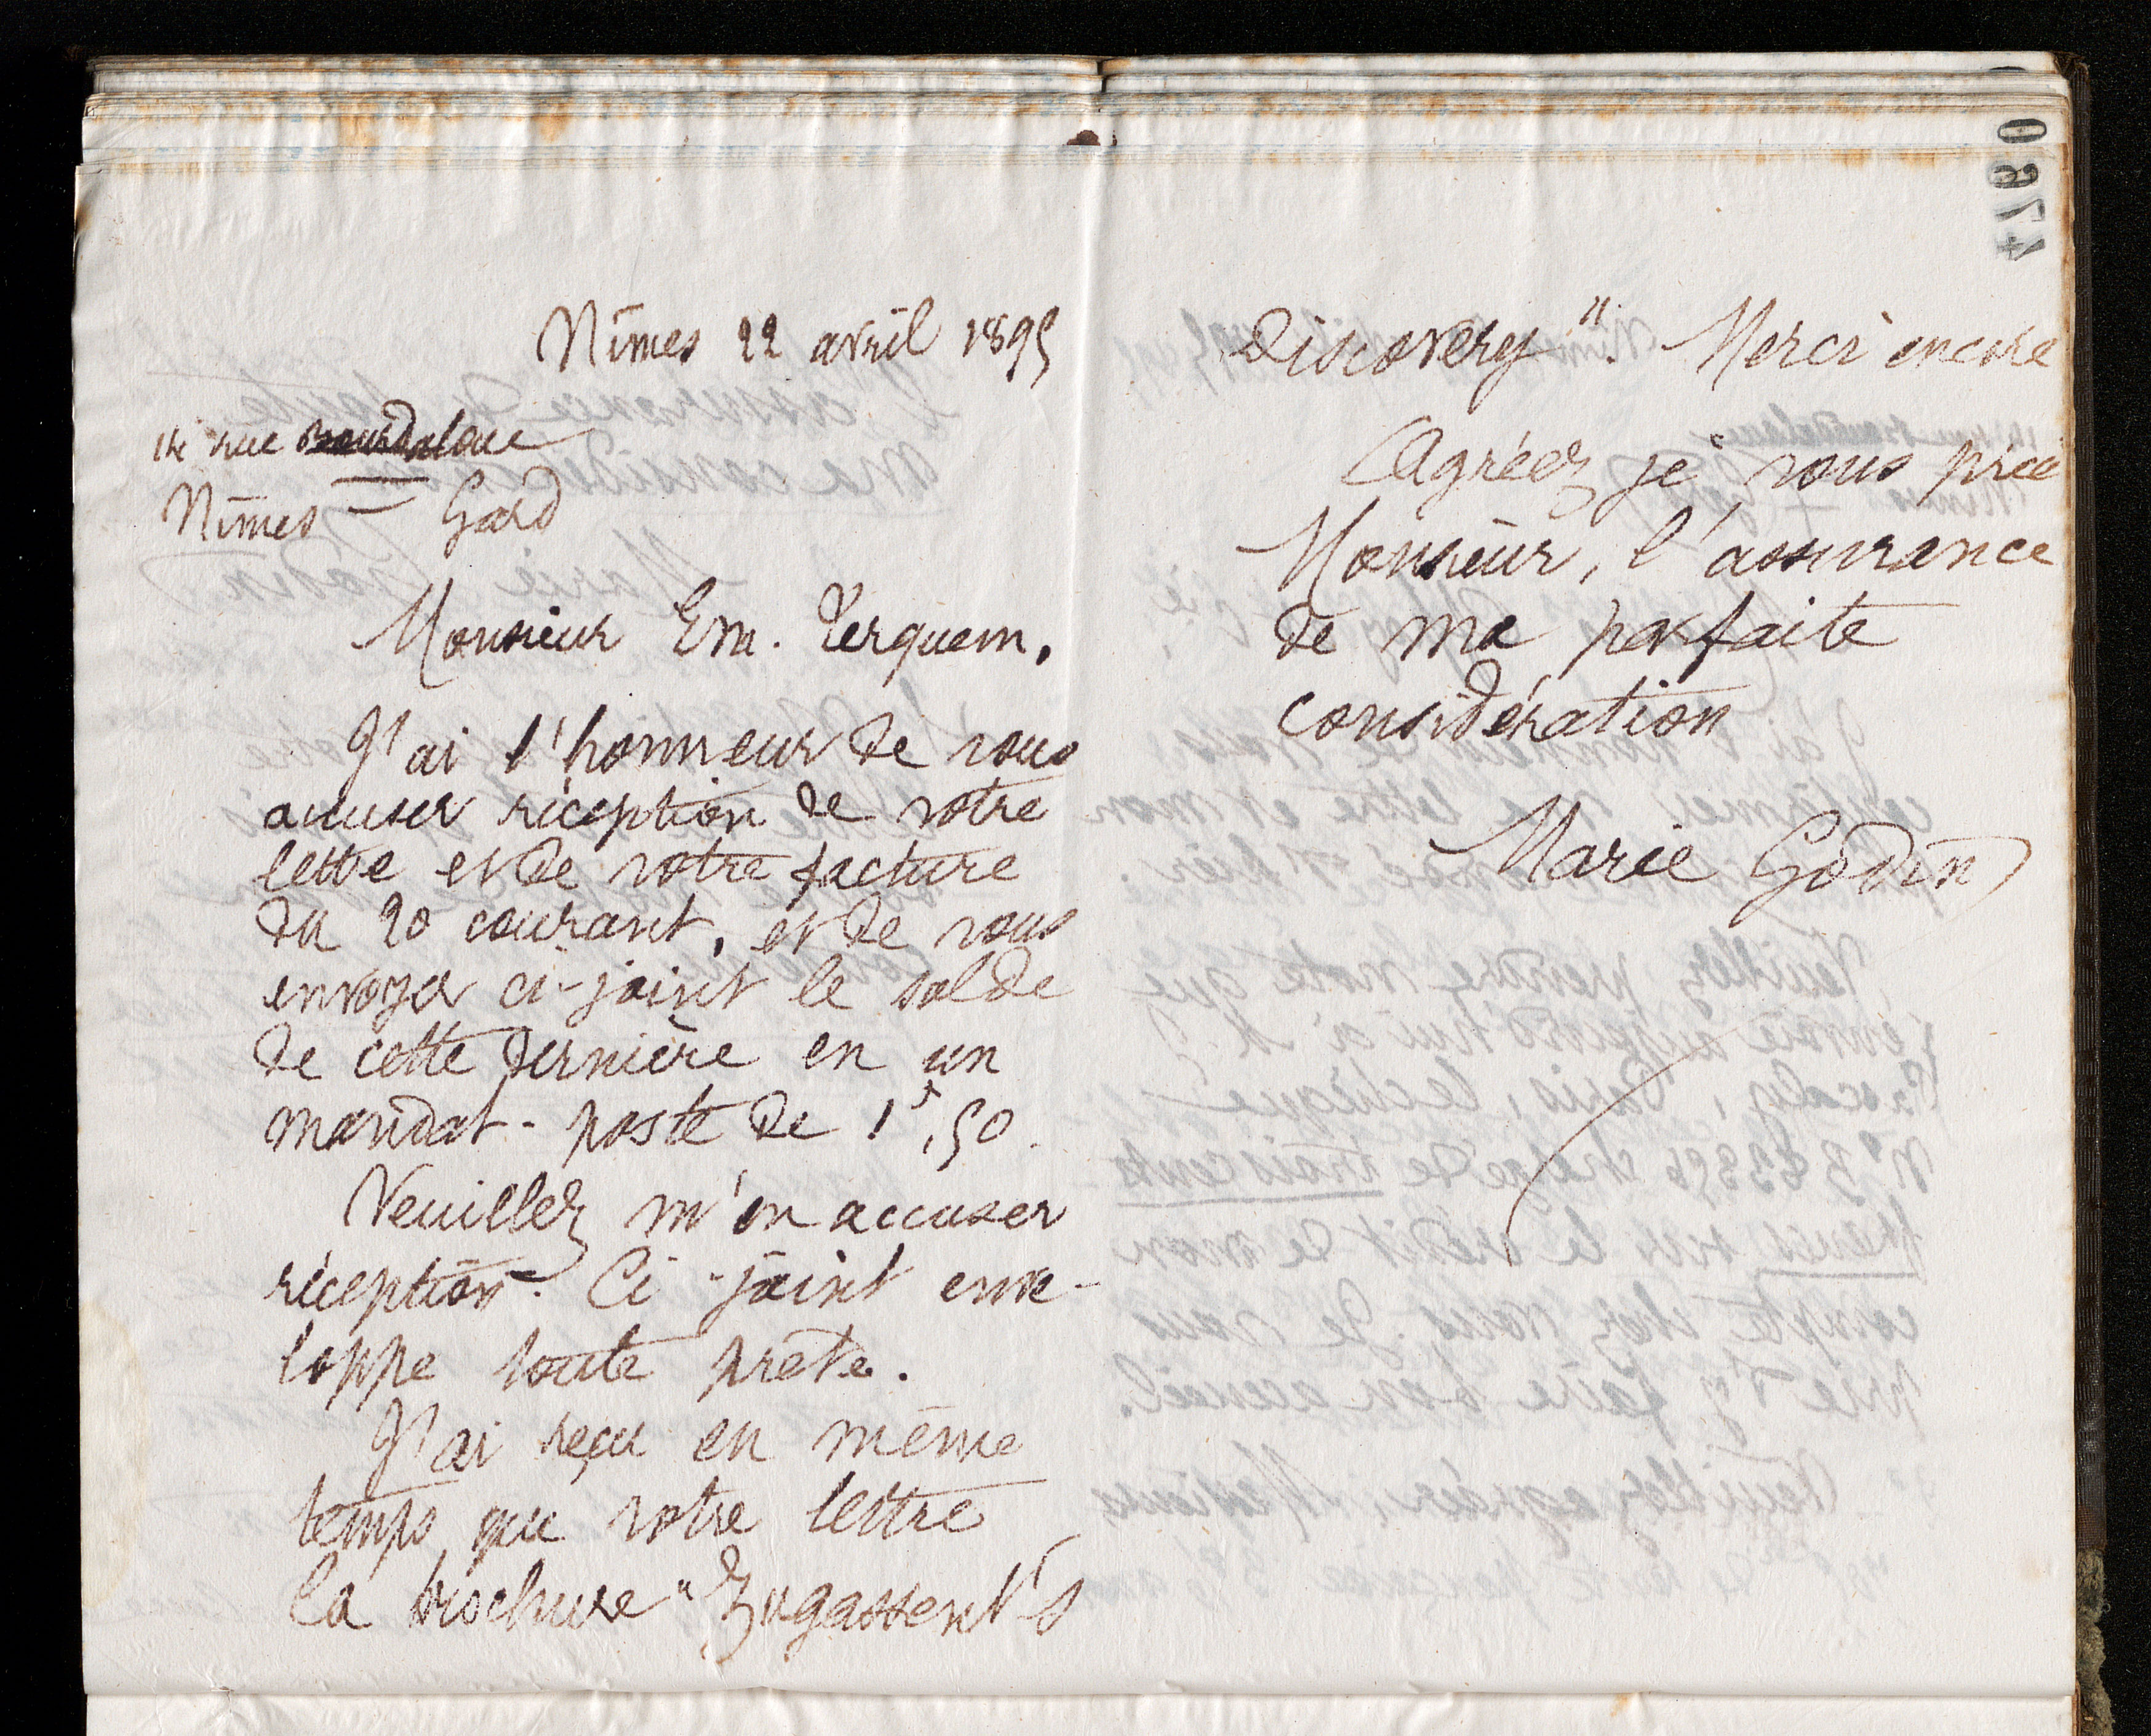 Nîmes 22 avril 1895
14 rue Bourdaloue
Nîmes – Gard
Monsieur Em. Terquem,
J'ai l'honneur de vous
accuser réception de votre
lettre et de votre facture
du 20 courant, et de vous
envoyer ci-joint le solde
de cette dernière en un
mandat-poste de 1f,50.
Veuillez m'en accuser
réception. Ci-joint enve-
loppe toute prête.
J'ai reçu en même
temps que votre lettre
la brochure "Zugassent's
Discovery". Merci encore
Agréez je vous prie
Monsieur, l'assurance
de ma parfaite
considération
Marie Godin
0874